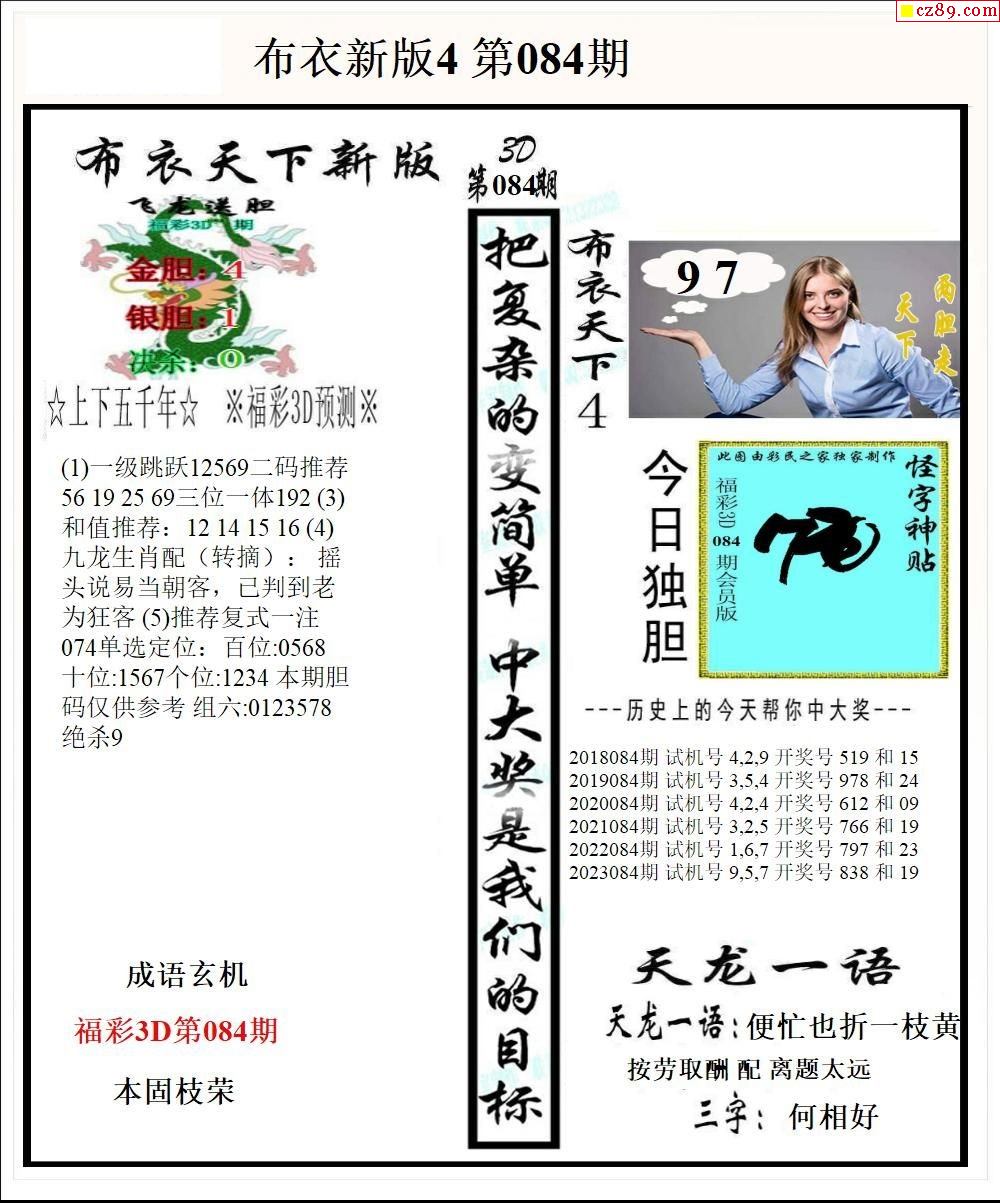 cz89.com
布衣新版4 第084期
布衣天下新版
飞龙送胆
福彩3D 期
金胆：4
银胆：1
决杀：0
☆上下五千年☆ ※福彩3D预测※
(1)一级跳跃12569二码推荐
56 19 25 69三位一体192 (3)
和值推荐：12 14 15 16 (4)
九龙生肖配（转摘）： 摇
头说易当朝客，己判到老
为狂客 (5)推荐复式一注
074单选定位：百位:0568
十位:1567个位:1234 本期胆
码仅供参考 组六:0123578
绝杀9
成语玄机
福彩3D第084期
本固枝荣
3D
第084期
把复杂的变简单 中大奖是我们的目标
布衣天下4
9 7
两胆走
天下
今日独胆
此图由彩民之家独家制作
怪字神贴
福彩3D 084 期会员版
---历史上的今天帮你中大奖---
2018084期 试机号 4,2,9 开奖号 519 和 15
2019084期 试机号 3,5,4 开奖号 978 和 24
2020084期 试机号 4,2,4 开奖号 612 和 09
2021084期 试机号 3,2,5 开奖号 766 和 19
2022084期 试机号 1,6,7 开奖号 797 和 23
2023084期 试机号 9,5,7 开奖号 838 和 19
天龙一语
天龙一语:便忙也折一枝黄
按劳取酬 配 离题太远
三字： 何相好